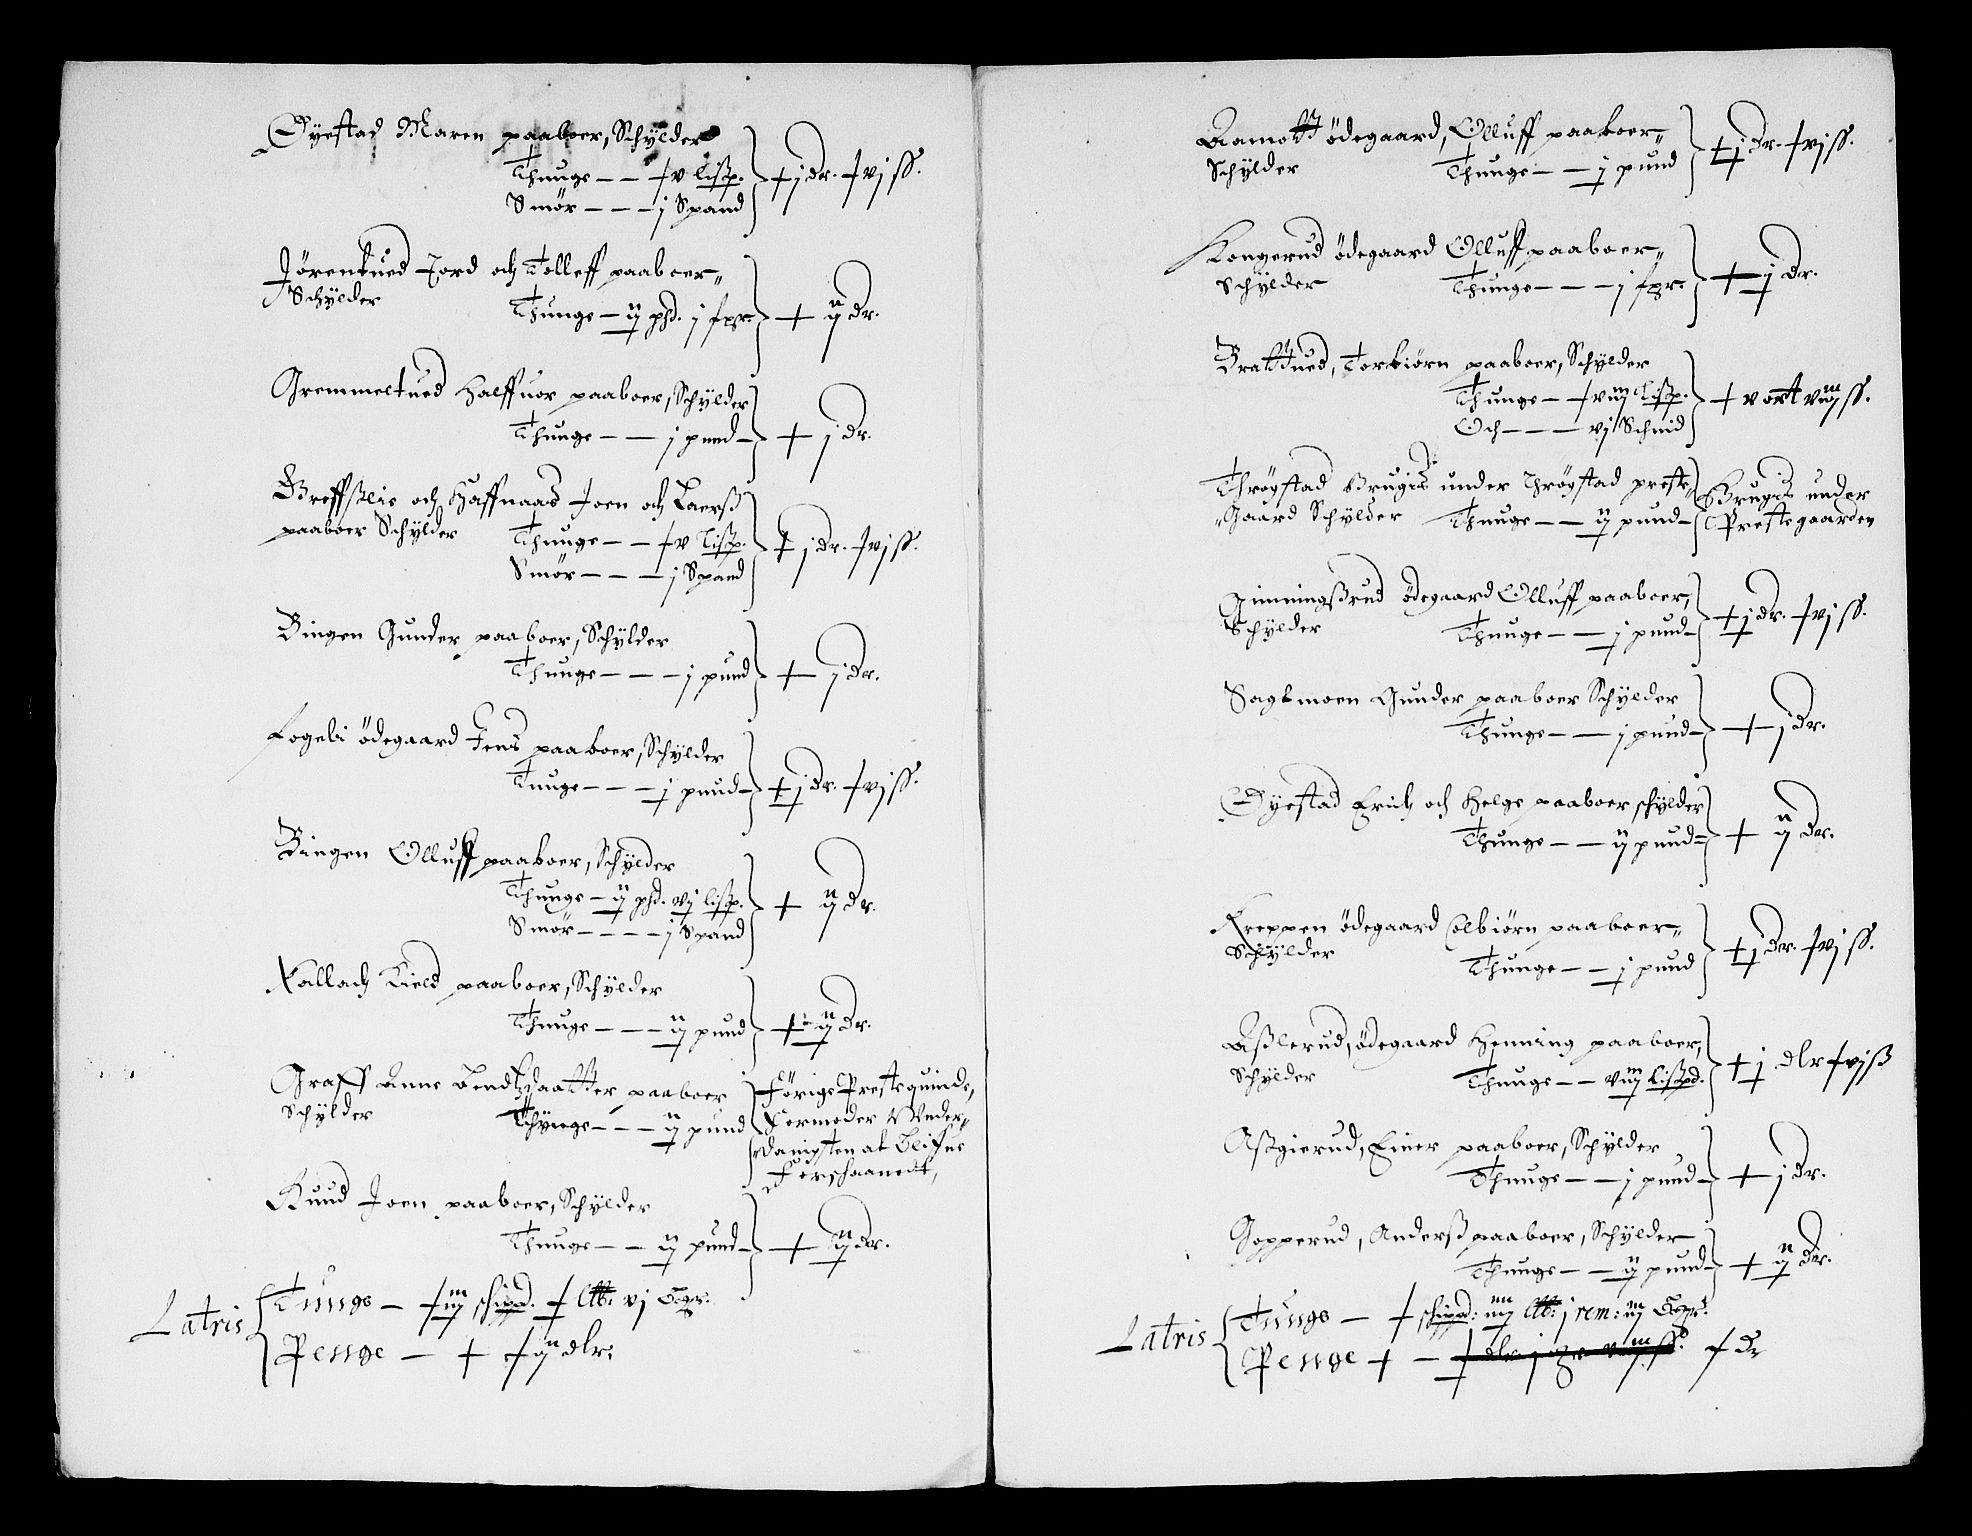 Øÿestad Maren paaboer, Schÿlder
Thunge — — + v lissp.
Smör — — — j Spand
+ j dr. + vj ss.
Jörentued Jord och Tolleff paaboer„
Schÿlder Thunge — ij pd. j fgr.
+ ij dr.
Gremmeltued Halffuor paaboer, Schÿlder
Thunge — — j pund —
+ j dr.
Greffsslie och Haffnaas Joen och Laerss
paaboer Schÿlder Thunge — — + v lissp.
Smör — — — j Spand
+ j dr. + vj ss.
Bingen Gunder paaboer, Schÿlder
Thunge — — — j pund
+ j dr.
Fogebi ödegaard Jens paaboer, Schÿlder
Tunge — — — j pund —
+ j dr. + vj ss.
Bingen Olluff paaboer, Schÿlder
Thunge — ij pd. vj lissp.
Smör — — — — j Spand
+ ij dr.
Kallach Kield paaboer, Schÿlder
Thunge — — — ij pund
+ ij dr.
Graff Anne Bendtzdaatter paaboer
Schÿlder Thünge — — — ij pund
Förige Prestequinde,
Formoder Wnder„
„danigsten at bliffue
Forschaanedt,
Ruud Joen paaboer, Schÿlder
Thunge — — ij pund —
+ ij dr.
Latris Tunge — + iij schipd. + ltt: vj
Penge — + + ij dlr:
Aamott ödegaard, Olluff paaboer„
Schÿlder Thunge — — j pund
+ j dr. + vj ss.
Kongerud ödegaard Olluff paaboer„
Schÿlder Thunge — — — j fgr.
+ j dr.
Brattued, Torbiörn paaboer, Schÿlder
Thunge — + viij lissp.
Och — — — vj Schind
+ v ort viij ss.
Thröystad Brugis under Thröystad prest„
„Gaard Schÿlder Thunge — — ij pund —
Brugis under
Prestegaarden
Gimmingssrud ödegaard Olluff paaboer,
Schÿlder Thunge — — j pund —
+ j dr. + vj ss.
Sagbmoen Gunder paaboer Schÿlder
Thunge — — j pund —
+ j dr.
Øÿestad Erich och Helge paaboer, schÿlder
Thunge — — ij pund —
+ ij dr.
Kreppen ödegaard Colbiörn paaboer„
Schÿlder Thunge — — j pund
+ j dr. + vj ss.
Asslerud, ödegaard Henning paaboer,
Schÿlder Thunge — — viij lisspd.
+ j dlr + vj ss
Assgierud, Einer paaboer, Schÿlder
Thunge — — j pund —
+ j dr.
Gopperud, Anderss paaboer, Schÿlder
Thunge — — ij pund —
+ ij dr.
Latris Tunge — + schipd: iiij ltt: j rem: iij
Penge + — + dlr j viij ss. + dr